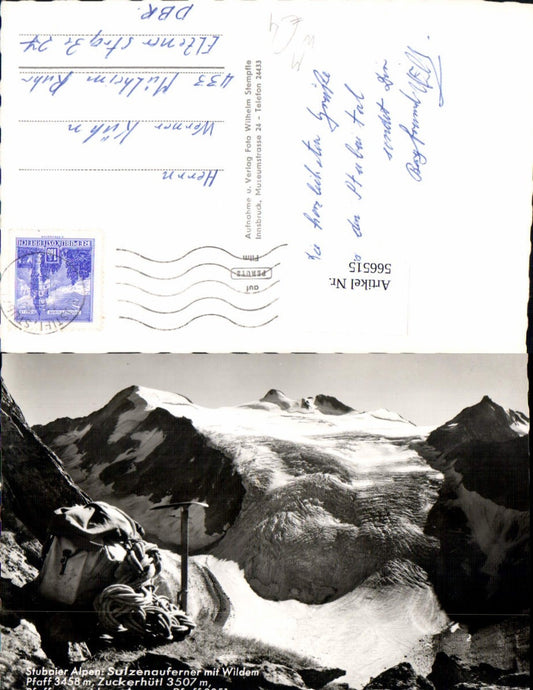 Herrn
Werner Kühn
433 Mülheim Ruhr
DBR.
Die herzlichsten Grüße
Stubaital
sendet Dir
Aufnahme u. Verlag Foto Wilhelm Stempfle
Innsbruck, Museumstrasse 24 - Telefon 24433
REPUBLIK ÖSTERREICH
auf
PERUTZ
Film
Artikel Nr.
566515
Stubaier Alpen: Sulzenauferner mit Wildem
Pfaff 3458 m, Zuckerhütl 3507 m,